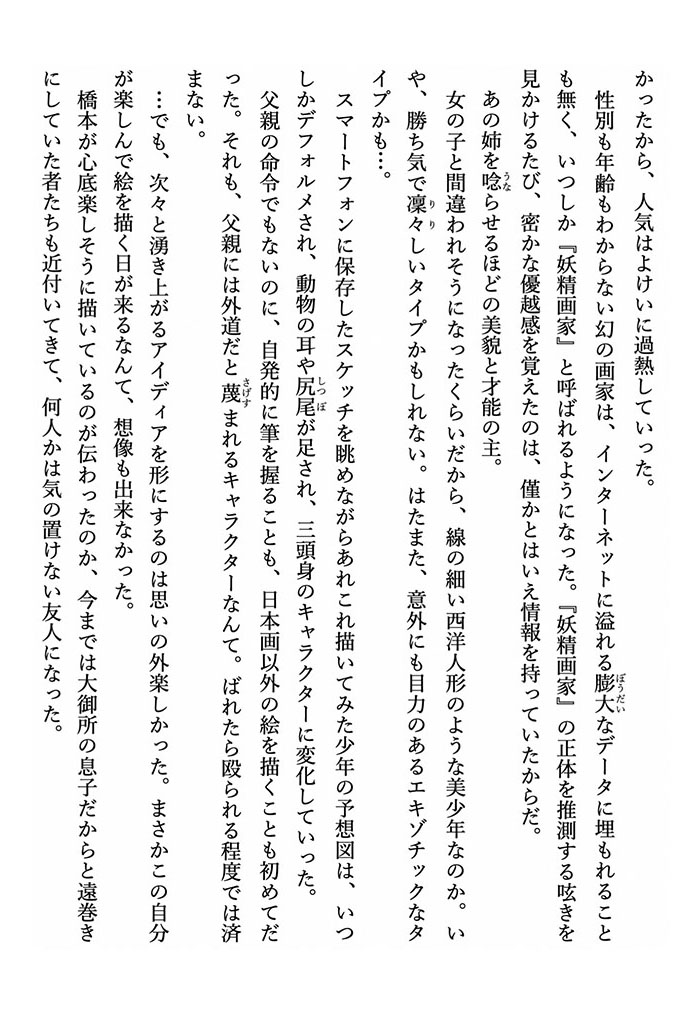 かったから、人気はよけいに過熱していった。
性別も年齢もわからない幻の画家は、インターネットに溢れる膨大なデータに埋もれること
も無く、いつしか『妖精画家』と呼ばれるようになった。『妖精画家』の正体を推測する呟きを
見かけるたび、密かな優越感を覚えたのは、僅かとはいえ情報を持っていたからだ。
あの姉を唸らせるほどの美貌と才能の主。
女の子と間違われそうになったくらいだから、線の細い西洋人形のような美少年なのか。い
や、勝ち気で凜々しいタイプかもしれない。はたまた、意外にも目力のあるエキゾチックなタ
イプかも…。
スマートフォンに保存したスケッチを眺めながらあれこれ描いてみた少年の予想図は、いつ
しかデフォルメされ、動物の耳や尻尾が足され、三頭身のキャラクターに変化していった。
父親の命令でもないのに、自発的に筆を握ることも、日本画以外の絵を描くことも初めてだ
った。それも、父親には外道だと蔑まれるキャラクターなんて。ばれたら殴られる程度では済
まない。
…でも、次々と湧き上がるアイディアを形にするのは思いの外楽しかった。まさかこの自分
が楽しんで絵を描く日が来るなんて、想像も出来なかった。
橋本が心底楽しそうに描いているのが伝わったのか、今までは大御所の息子だからと遠巻き
にしていた者たちも近付いてきて、何人かは気の置けない友人になった。